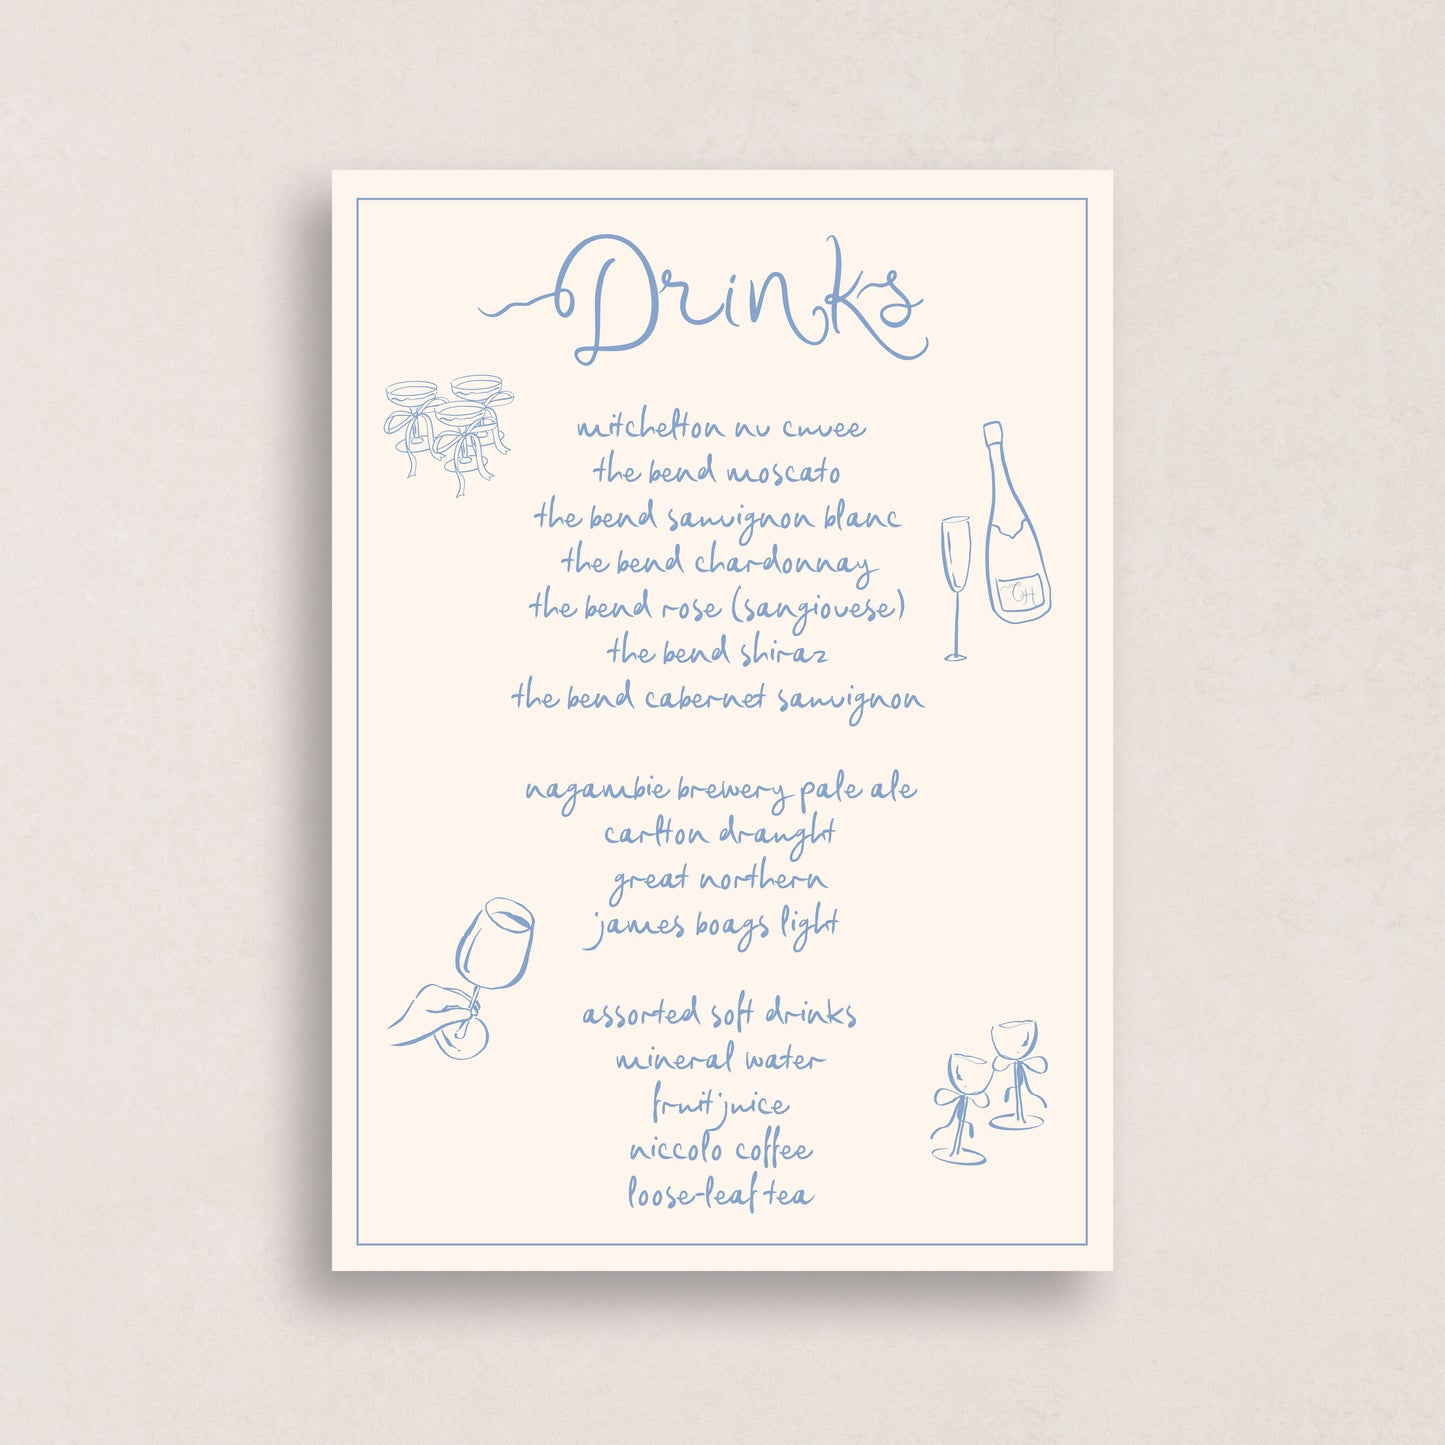 Drinks
mitchelton nv cuvee
the bend moscato
the bend sauvignon blanc
the bend chardonnay
the bend rose (sangiovese)
the bend shiraz
the bend cabernet sauvignon
GH
nagambie brewery pale ale
carlton draught
great northern
james boags light
assorted soft drinks
mineral water
fruit juice
niccolo coffee
loose-leaf tea